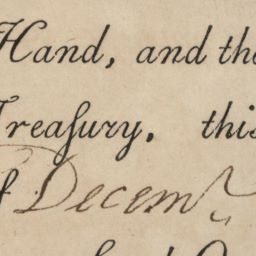 Hand, and the
Treaſury, this
of Decemr